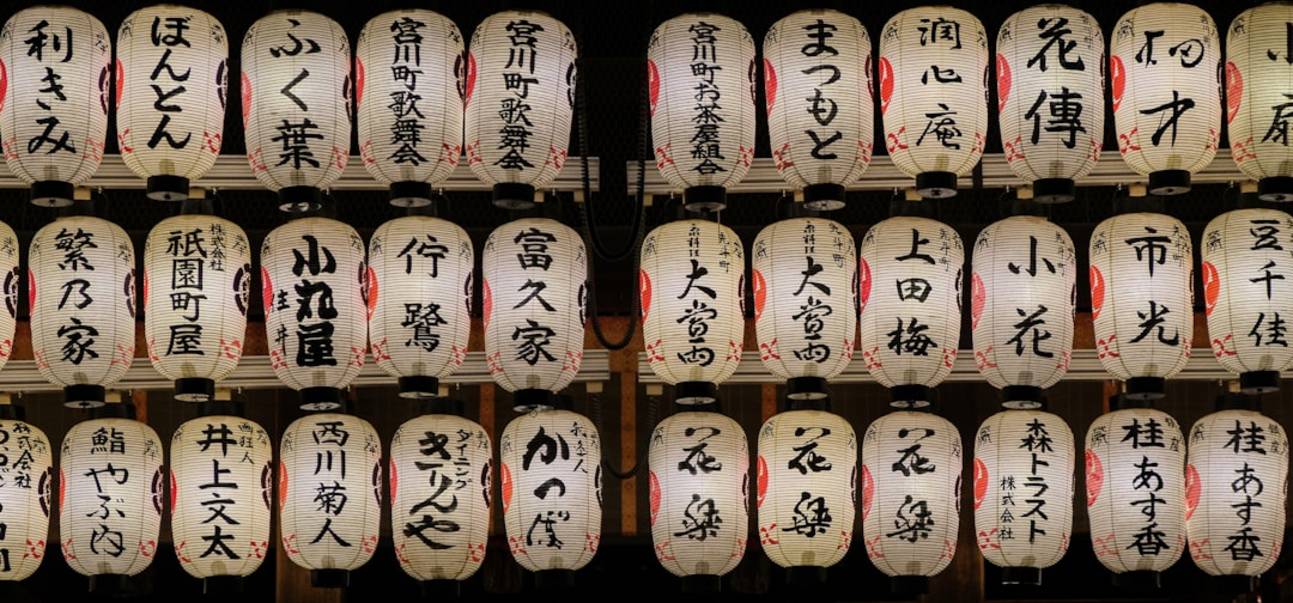 利きみ
ぼんとん
ふく葉
宮川町歌舞会
宮川町歌舞会
宮川町お茶屋組合
まつもと
潤心庵
花傳
小扇
繁乃家
株式会社
祇園町屋
小丸屋
住井
佇鷺
富久家
先斗町
京料理
大當両
先斗町
京料理
大當両
先斗町
上田梅
小花
市光
豆千佳
株式会社
鮨やぶ内
画狂人
井上文太
西川菊人
ダイニング
きりんや
かっぱ
花樂
花樂
花樂
森トラスト
株式会社
桂あす香
桂あす香